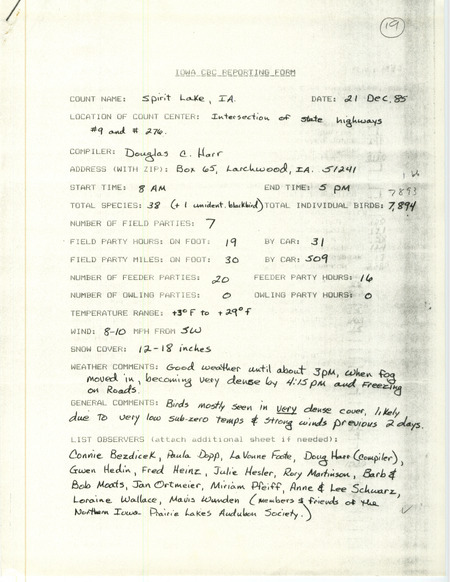 19
IOWA CBC REPORTING FORM
COUNT NAME: Spirit Lake, IA. DATE: 21 Dec. 85
LOCATION OF COUNT CENTER: Intersection of state highways
#9 and # 276.
COMPILER: Douglas C. Harr
ADDRESS (WITH ZIP): Box 65, Larchwood, IA. 51241
START TIME: 8 AM END TIME: 5 PM
7893
TOTAL SPECIES: 38 (+ 1 unident. blackbird) TOTAL INDIVIDUAL BIRDS: 7,894
NUMBER OF FIELD PARTIES: 7
FIELD PARTY HOURS: ON FOOT: 19 BY CAR: 31
FIELD PARTY MILES: ON FOOT: 30 BY CAR: 509
NUMBER OF FEEDER PARTIES: 20 FEEDER PARTY HOURS: 16
NUMBER OF OWLING PARTIES: 0 OWLING PARTY HOURS: 0
TEMPERATURE RANGE: +3°F to +29°F
WIND: 8-10 MPH FROM SW
SNOW COVER: 12-18 inches
WEATHER COMMENTS: Good weather until about 3PM, when fog
moved in, becoming very dense by 4:15 PM and Freezing
on Roads.
GENERAL COMMENTS: Birds mostly seen in very dense cover, likely
due to very low sub-zero temps & strong winds previous 2 days.
LIST OBSERVERS (attach additional sheet if needed):
Connie Bezdicek, Paula Dopp, LaVonne Foote, Doug Harr (compiler),
Gwen Hedin, Fred Heinz, Julie Hesler, Rory Martinson, Barb &
Bob Moats, Jan Ortmeier, Miriam Pfeiff, Anne & Lee Schwarz,
Loraine Wallace, Mavis Wunden (members & friends of the
Northern Iowa Prairie Lakes Audubon Society.)